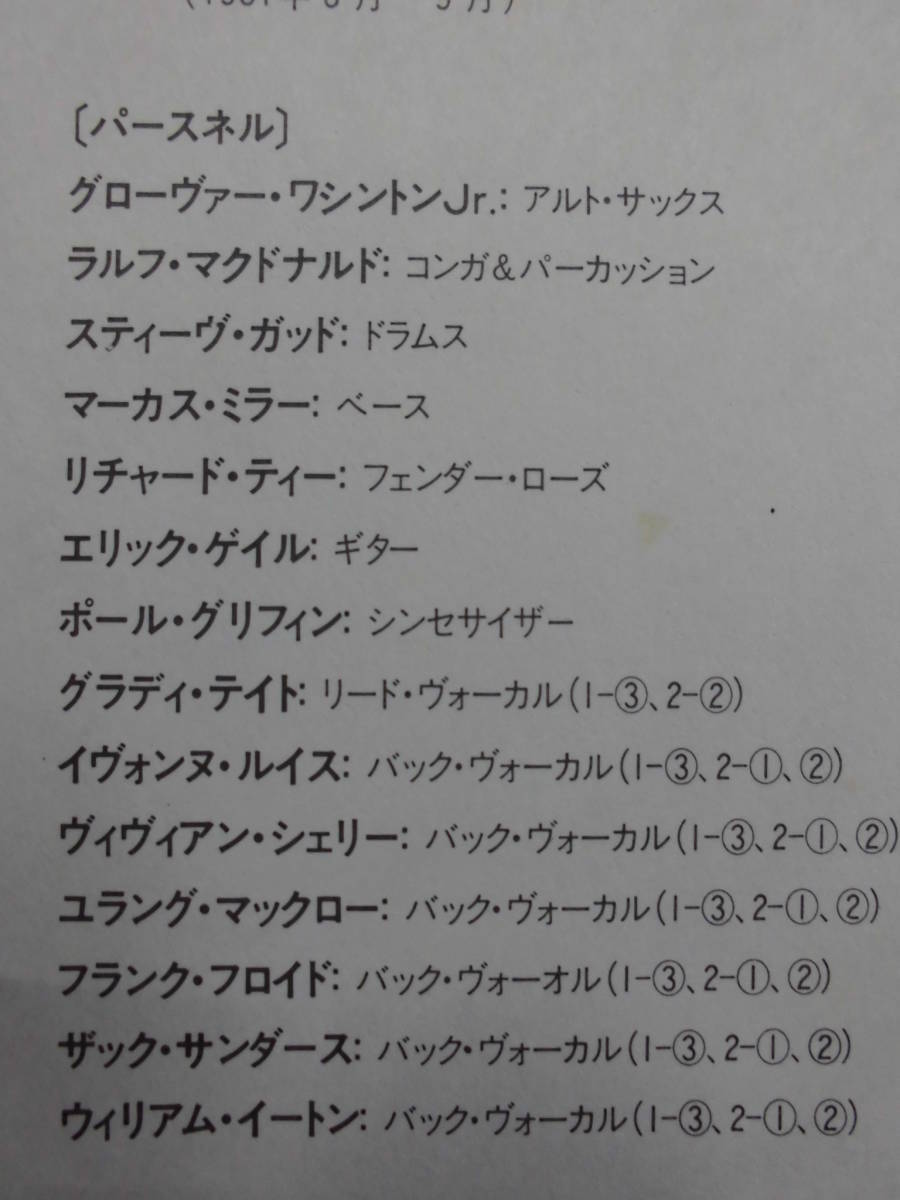 〔パースネル〕
グローヴァー・ワシントンJr.: アルト・サックス
ラルフ・マクドナルド: コンガ＆パーカッション
スティーヴ・ガッド: ドラムス
マーカス・ミラー: ベース
リチャード・ティー: フェンダー・ローズ
エリック・ゲイル: ギター
ポール・グリフィン: シンセサイザー
グラディ・テイト: リード・ヴォーカル(1-③、2-②)
イヴォンヌ・ルイス: バック・ヴォーカル(1-③、2-①、②)
ヴィヴィアン・シェリー: バック・ヴォーカル(1-③、2-①、②)
ユラング・マックロー: バック・ヴォーカル(1-③、2-①、②)
フランク・フロイド: バック・ヴォーオル(1-③、2-①、②)
ザック・サンダース: バック・ヴォーカル(1-③、2-①、②)
ウィリアム・イートン: バック・ヴォーカル(1-③、2-①、②)